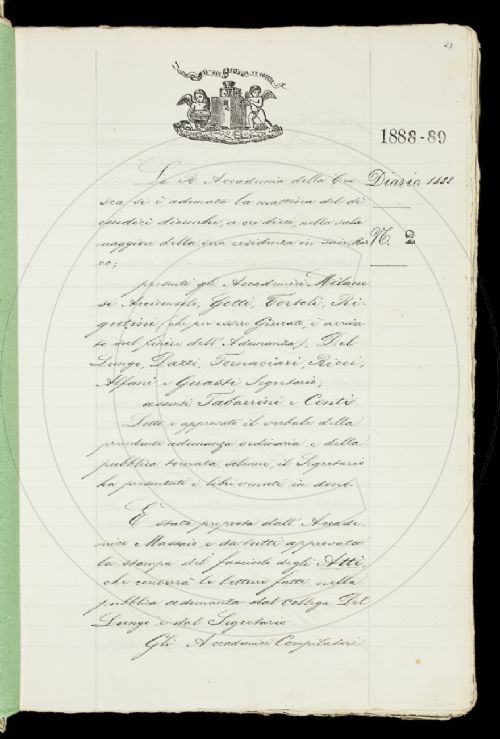 29
1888-89
Diario 1888
N. 2
La R. Accademia della Cru-
sca si è adunata la mattina del dì
sedici dicembre, a ore dieci, nella sala
maggiore della sua residenza in San Mar
co;
presenti gli Accademici Milane
si Arciconsolo, Gotti, Tortoli, Ri-
gutini (che per essere Giurato, è arriva-
to sul finire dell'Adunanza), Del
Lungo, Dazzi, Fornaciari, Ricci,
Alfani e Gerasti Segretario;
assenti Tabarrini e Conti.
Letto e approvato il verbale della
precedente adunanza ordinaria e della
pubblica tornata solenne, il Segretario
ha presentati i libri venuti in dono.
È stata proposta dall'Accade-
mico Massaio, e da tutti approvata
la stampa del fascicolo degli Atti,
che conterrà le letture fatte nella
pubblica adunanza dal collega Del
Lungo e dal Segretario.
Gli Accademici Compilatori